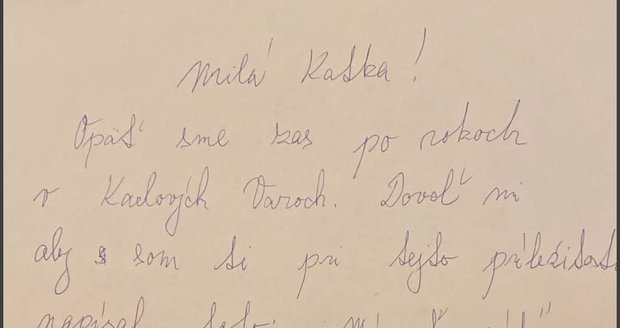 Milá Katka!
Opäť sme zas po rokoch
v Karlových Varoch. Dovoľ mi
aby som ti pri tejto príležitosti
napísal